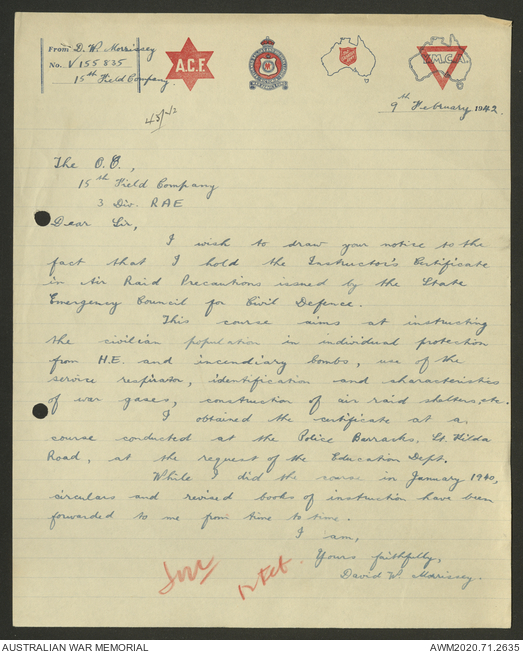 From D. W. Morrissey
No. V 155835
15th Field Company.
A.C.F.
Y.M.C.A.
9th February 1942.
The O.C.,
15th Field Company
3 Div. RAE
Dear Sir,
I wish to draw your notice to the
fact that I hold the Instructor's Certificate
in Air Raid Precautions issued by the State
Emergency Council for Civil Defence.
This course aims at instructing
the civilian population in individual protection
from H.E. and incendiary bombs, use of the
service respirator, identification and characteristics
of war gases, construction of air raid shelters, etc.
I obtained the certificate at a
course conducted at the Police Barracks, St. Kilda
Road, at the request of the Education Dept.
While I did the course in January 1940,
circulars and revised books of instruction have been
forwarded to me from time to time.
I am,
Yours faithfully,
David W. Morrissey.
12 Feb.
AUSTRALIAN WAR MEMORIAL
AWM2020.71.2635